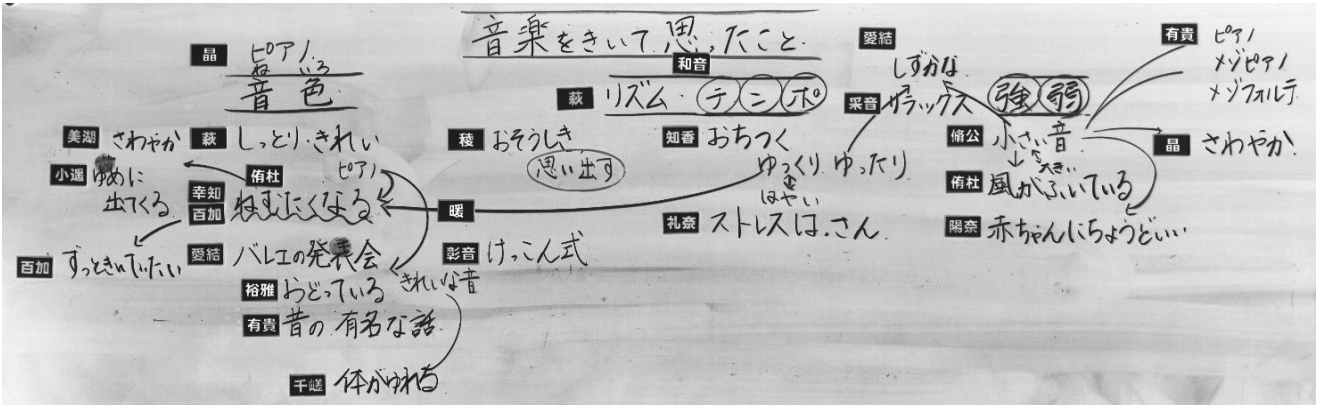 音楽をきいて思ったこと
晶 ピアノ
ねいろ
音色
美湖 さわやか
萩 しっとり・きれい
小遥 ゆめに
出てくる
侑杜
幸知
百加 ねむたくなる
ピアノ
暖
百加 ずっときいていたい
愛結 バレエの発表会
裕雅 おどっている
きれいな音
有貴 昔の有名な話
体がゆれる
稜 おそうしき
思い出す
彰音 けっこん式
和音
萩 リズム・テンポ
知香 おちつく
ゆっくり ゆったり
はやい
礼奈 ストレスはっさん
愛結
しずかな
采音 リラックス
強弱
有貴 ピアノ
メゾピアノ
メゾフォルテ
脩公 小さい音
大きい
侑杜 風がふいている
晶 さわやか
陽奈 赤ちゃんにちょうどいい